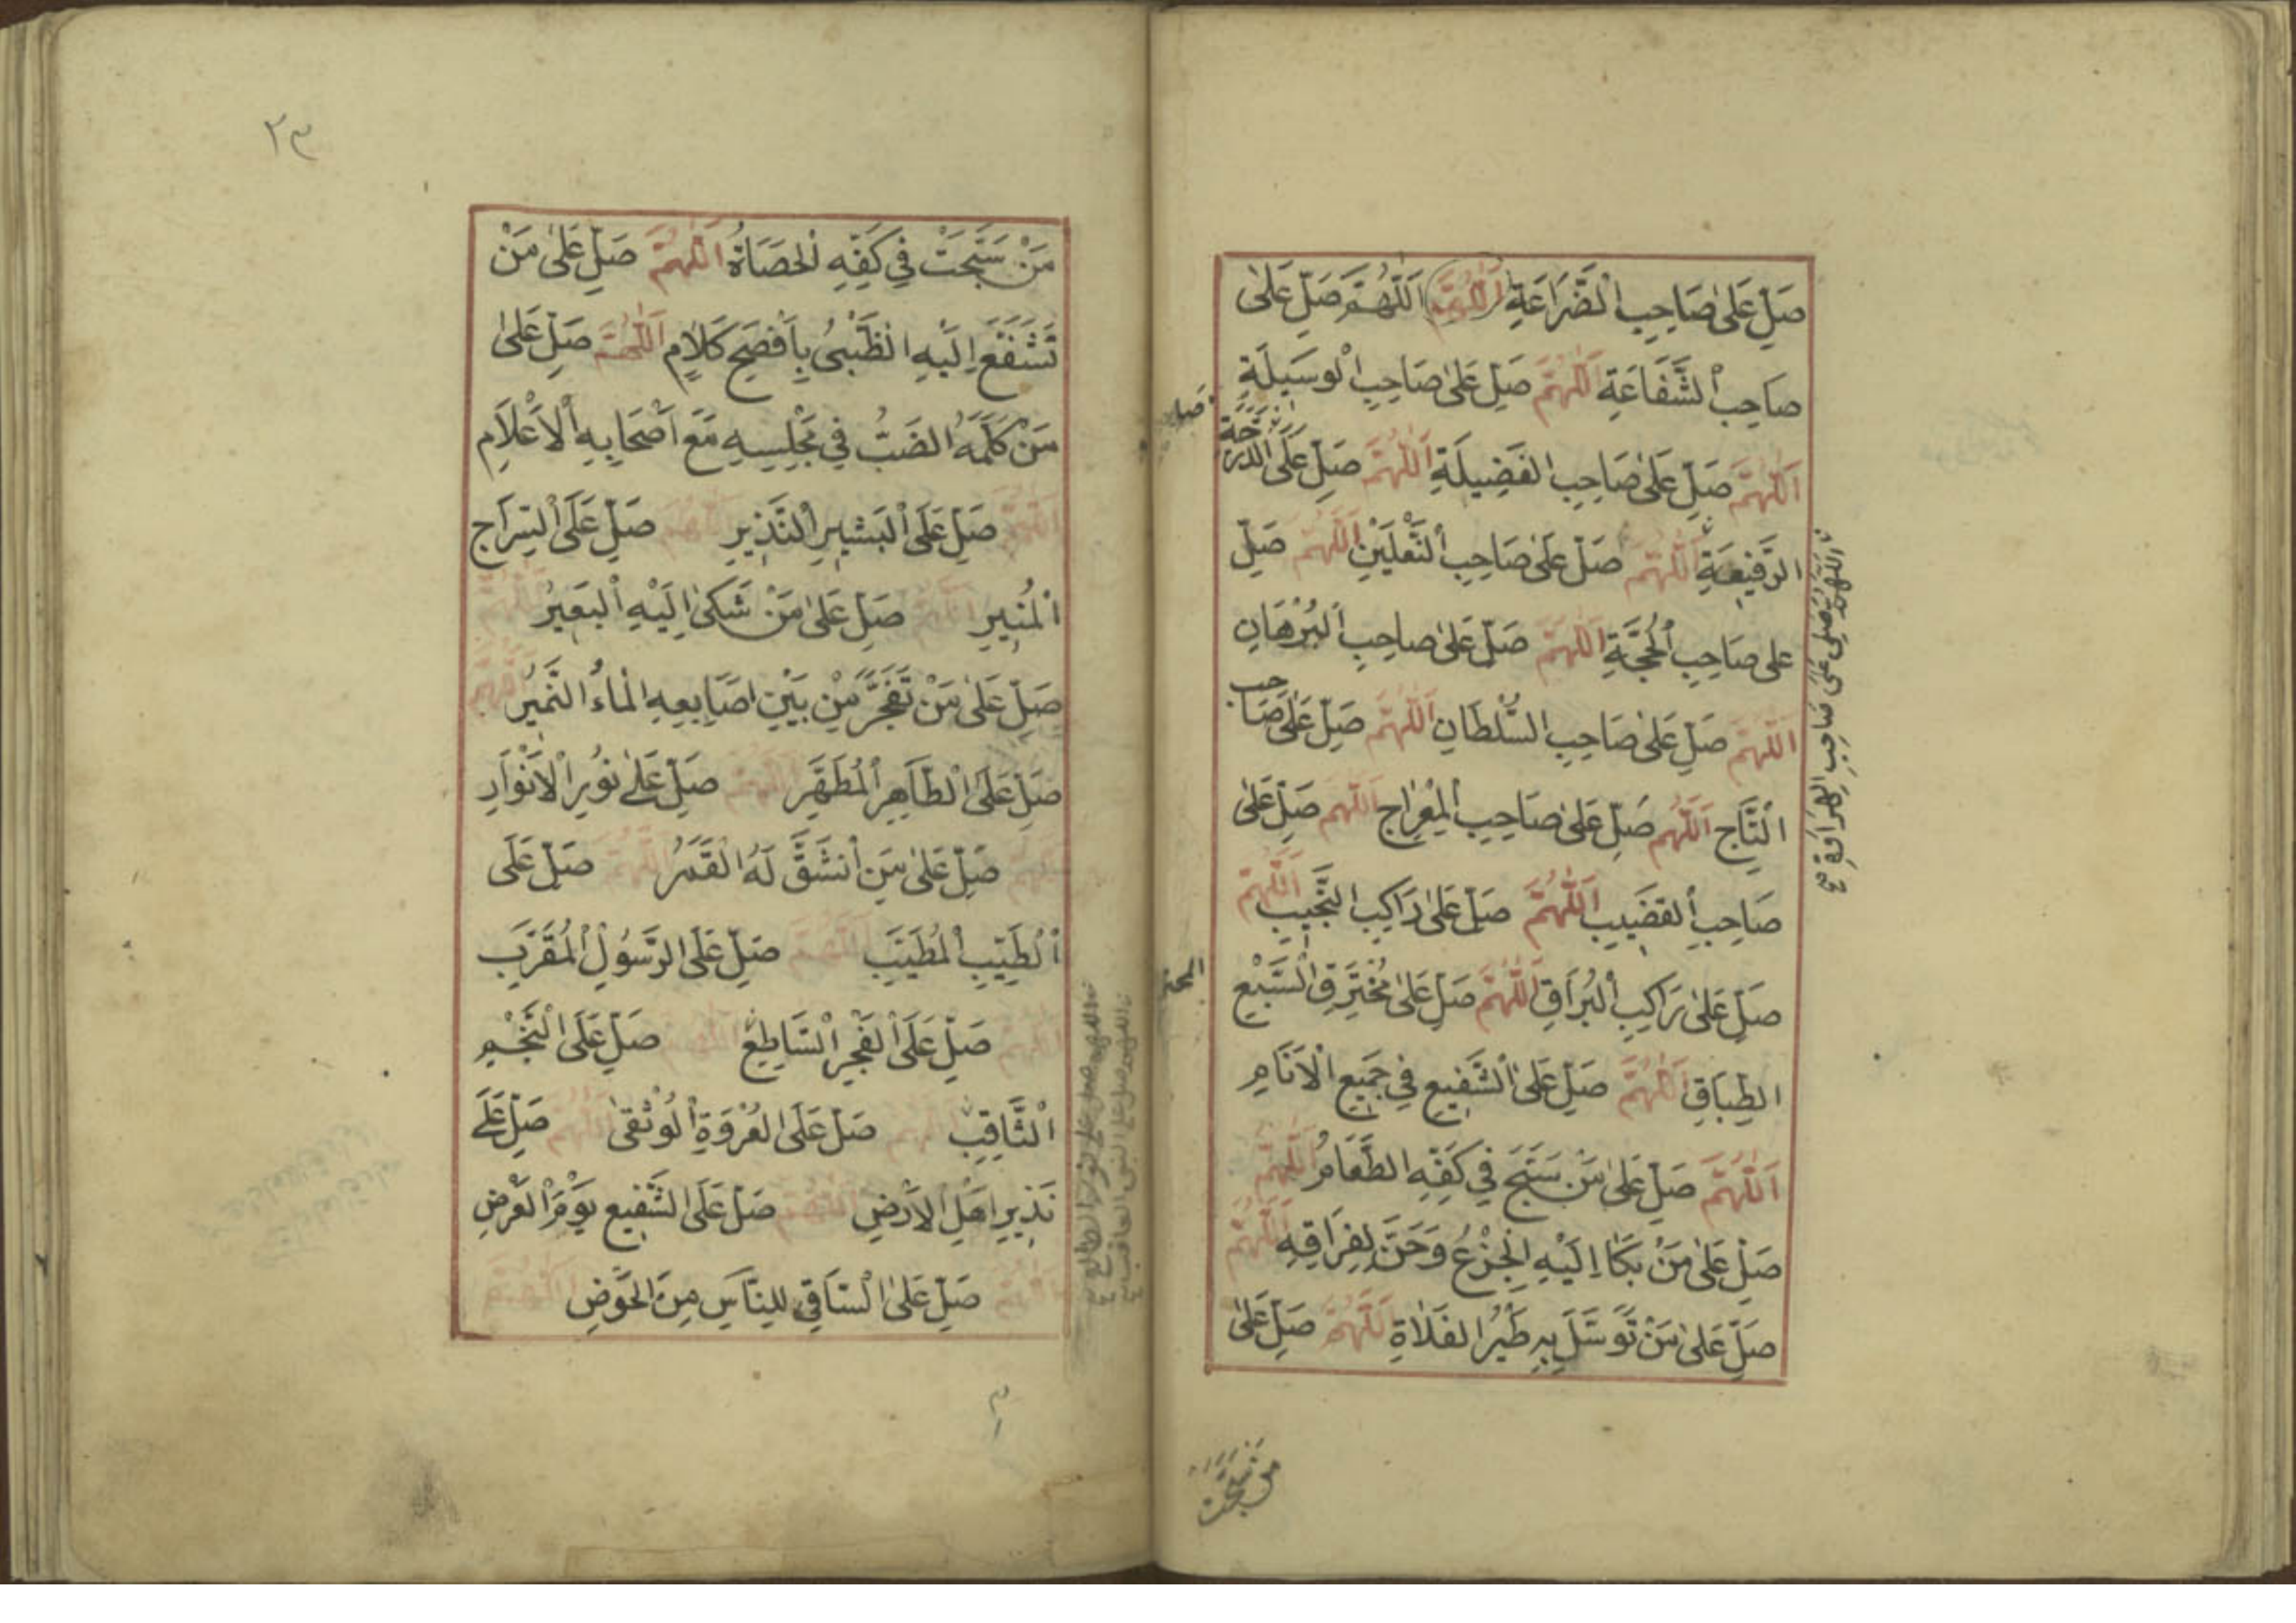 صَلِّ عَلٰى صَاحِبِ الضَّرَاعَةِ اَللّٰهُمَّ اَللّٰهُمَّ صَلِّ عَلٰى
صَاحِبِ الشَّفَاعَةِ اَللّٰهُمَّ صَلِّ عَلٰى صَاحِبِ الْوَسِيلَةِ
اَللّٰهُمَّ صَلِّ عَلٰى صَاحِبِ الْفَضِيلَةِ اَللّٰهُمَّ صَلِّ عَلَى الدَّرَجَةِ
الرَّفِيعَةِ اَللّٰهُمَّ صَلِّ عَلٰى صَاحِبِ النَّعْلَيْنِ اَللّٰهُمَّ صَلِّ
على صَاحِبِ الْحُجَّةِ اَللّٰهُمَّ صَلِّ عَلٰى صاحِبِ الْبُرْهَانِ
اَللّٰهُمَّ صَلِّ عَلٰى صَاحِبِ السُّلْطَانِ اَللّٰهُمَّ صَلِّ عَلٰى صَاحب
التَّاجِ اَللّٰهُمَّ صَلِّ عَلٰى صَاحِبِ الْمِعْرَاجِ اَللّٰهُمَّ صَلِّ عَلٰى
صَاحِبِ الْقَضِيبِ اَللّٰهُمَّ صَلِّ عَلٰى رَاكِبِ النَّجِيبِ اَللّٰهُمَّ
صَلِّ عَلٰى رَاكِبِ الْبُرَاقِ اَللّٰهُمَّ صَلِّ عَلٰى مُخْتَرِقِ السَّبْعِ
الطِّبَاقِ اَللّٰهُمَّ صَلِّ عَلَى الشَّفِيعِ فِي جَمِيعِ الْاَنَامِ
اَللّٰهُمَّ صَلِّ عَلٰى مَنْ سَبَّحَ فِي كَفِّهِ الطَّعَامُ اَللّٰهُمَّ
صَلِّ عَلٰى مَنْ بَكَا اِلَيْهِ الْجِزْعُ وَحَنَّ لِفِرَاقِهِ اَللّٰهُمَّ
صَلِّ عَلٰى مَنْ تَوَسَّلَ بِهِ طَيْرُ الْفَلَاةِ اَللّٰهُمَّ صَلِّ عَلٰى
اللّٰهُمَّ صَلِّى عَلٰى صَاحِبِ الْهِرَاوَةِ
من سبحت
٢٣
مَنْ سَبَّحَتْ فِي كَفِّهِ الْحَصَاةُ اَللّٰهُمَّ صَلِّ عَلٰى مَنْ
تَشَفَّعَ اِلَيْهِ الظَّبْيُ بِاَفْصَحِ كَلَامٍ اَللّٰهُمَّ صَلِّ عَلٰى
مَنْ كَلَّمَهُ الضَّبُّ فِي مَجْلِسِهِ مَعَ اَصْحَابِهِ الْاَعْلَامِ
اَللّٰهُمَّ صَلِّ عَلَى الْبَشِيرِ النَّذِيرِ اَللّٰهُمَّ صَلِّ عَلَى السِّرَاجِ
الْمُنِيرِ اَللّٰهُمَّ صَلِّ عَلٰى مَنْ شَكٰى اِلَيْهِ الْبَعِيرُ اَللّٰهُمَّ
صَلِّ عَلٰى مَنْ تَفَجَّرَ مِنْ بَيْنِ اَصَابِعِهِ الْمَاءُ النَّمِيرُ اَللّٰهُمَّ
صَلِّ عَلَى الطَّاهِرِ الْمُطَهَّرِ اَللّٰهُمَّ صَلِّ عَلٰى نُورِ الْاَنْوَارِ
اَللّٰهُمَّ صَلِّ عَلٰى مَنِ انْشَقَّ لَهُ الْقَمَرُ اَللّٰهُمَّ صَلِّ عَلَى
الطَّيِّبِ الْمُطَيَّبِ اَللّٰهُمَّ صَلِّ عَلَى الرَّسُولِ الْمُقَرَّبِ
اَللّٰهُمَّ صَلِّ عَلَى الْفَجْرِ السَّاطِعِ اَللّٰهُمَّ صَلِّ عَلَى النَّجْمِ
الثَّاقِبِ اَللّٰهُمَّ صَلِّ عَلَى الْعُرْوَةِ الْوُثْقٰى اَللّٰهُمَّ صَلِّ عَلٰى
نَذِيرِ اَهْلِ الْاَرْضِ اَللّٰهُمَّ صَلِّ عَلَى الشَّفِيعِ يَوْمَ الْعَرْضِ
اَللّٰهُمَّ صَلِّ عَلَى السَّاقِي لِلنَّاسِ مِنَ الْحَوْضِ اَللّٰهُمَّ